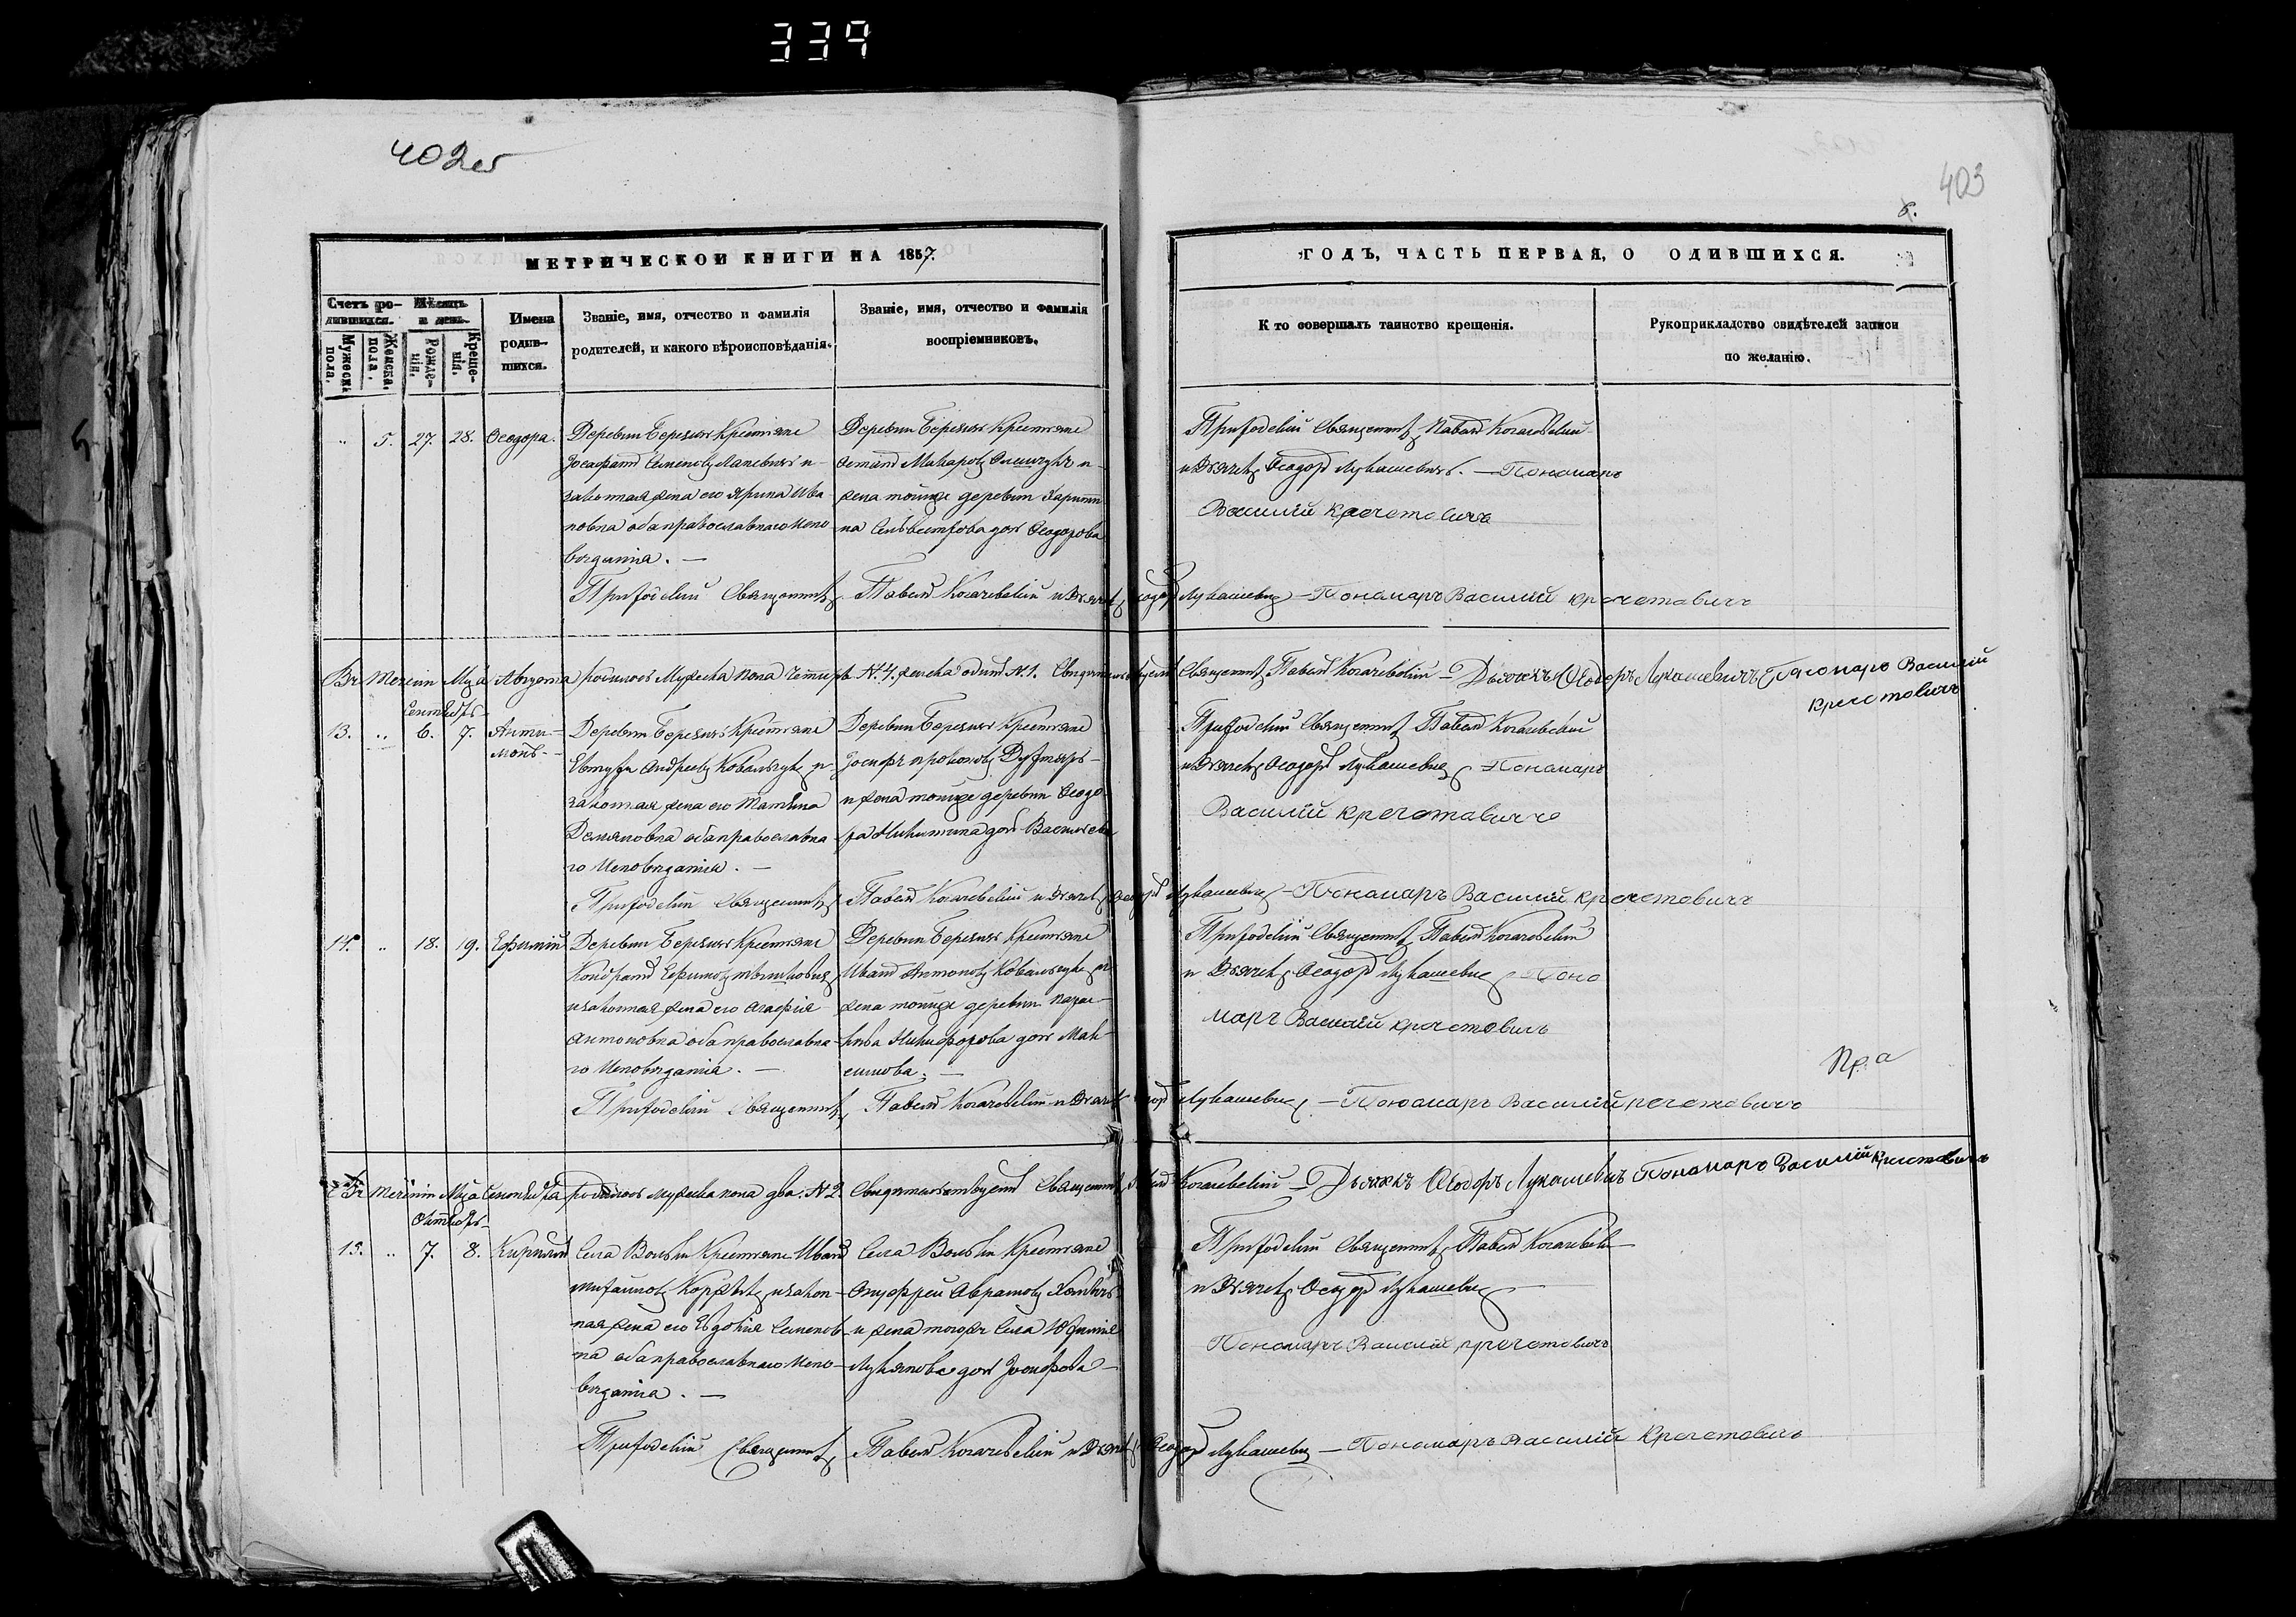 339
402об
403
6.
МЕТРИЧЕСКОЙ КНИГИ НА 1857.
ГОДЪ, ЧАСТЬ ПЕРВАЯ, О ОДИВШИХСЯ.
Счетъ ро-
дившихся.
Мѣсяцъ
и день.
Мужеск.
пола.
Женска.
пола.
Рожде-
нія.
Креще-
нія.
Имена
родив-
шихся.
Званіе, имя, отчество и фамилія
родителей, и какого вѣроисповѣданія.
Званіе, имя, отчество и фамилія
воспріемниковъ.
К то совершалъ таинство крещенія.
Рукоприкладство свидѣтелей записи
по желанію.
„ 5. 27. 28. Ѳеодора.
Деревни Березичъ Крестьяне
Іосафатъ Семеновъ и
законная жена его Ярина Ива
новна оба православнаго Испо
вѣданія. —
Деревни Березичъ Крестьяне
Остапъ Макаровъ и
жена тойже деревни Харити
на Сильвестрова дочь Ѳеодорова
Приходскій Священникъ Павелъ Когачевскій
и Дьячекъ Ѳеодоръ Лукашевичъ. — Пономарь
Василій Кречетовичъ
Приходскій Священникъ Павелъ Когачевскій и Дьячекъ Ѳеодоръ Лукашевичъ — Пономарь Василій Кречетовичъ
Въ теченіи Мца Августа родилось Мужеска пола четыре № 4. женска одинъ № 1. Свидѣтельствуемъ Священникъ Павелъ Когачевскій — Дьячекъ Ѳеодоръ Лукашевичъ Пономарь Василій
Кречетовичъ
Сентябрь
13. „ 6. 7. Анти-
монъ.
Деревни Березичъ Крестьяне
Евтухъ Андреевъ Ковальчукъ и
законная жена его Татьяна
Демяновна оба православна
го Исповѣданія. —
Деревни Березичъ Крестьяне
Іосифъ Прокоповъ
и жена тойже деревни Ѳеодо
ра Никитина дочь Васильева
Приходскій Священникъ Павелъ Когачевскій
и Дьячекъ Ѳеодоръ Лукашевичъ Пономарь
Василій Кречетовичъ
Приходскій Священникъ Павелъ Когачевскій и Дьячекъ Ѳеодоръ Лукашевичъ — Пономарь Василій Кречетовичъ
14. „ 18. 19. Ефимій
Деревни Березичъ Крестьяне
Кондратъ Ефимовъ
и законная жена его Агафія
Антоновна оба православна
го Исповѣданія. —
Деревни Березичъ Крестьяне
Иванъ Антоновъ Ковальчукъ и
жена тойже деревни Парас-
кива Никифорова дочь Мак
симова. —
Приходскій Священникъ Павелъ Когачевскій
и Дьячекъ Ѳеодоръ Лукашевичъ Поно
марь Василій Кречетовичъ
Приходскій Священникъ Павелъ Когачевскій и Дьячекъ Ѳеодоръ Лукашевичъ — Пономарь Василій Кречетовичъ
Въ теченіи Мца Сентября родилось мужеска пола два. № 2 Свидѣтельствуемъ Священникъ Павелъ Когачевскій — Дьячекъ Ѳеодоръ Лукашевичъ Пономарь Василій Кречетовичъ
Октябрь
15. „ 7. 8. Кириллъ
Села Вольки Крестьяне Иванъ
Михаиловъ и закон-
ная жена его Евдокія Семенов
на оба православнаго Испо-
вѣданія. —
Села Вольки Крестьяне
Онуфрей Аврамовъ
и жена тогожъ Села
Лукянова дочь Іосифова
Приходскій Священникъ Павелъ Когачевскій
и Дьячекъ Ѳеодоръ Лукашевичъ
Пономарь Василій Кречетовичъ
Приходскій Священникъ Павелъ Когачевскій и Дьячекъ Ѳеодоръ Лукашевичъ — Пономарь Василій Кречетовичъ